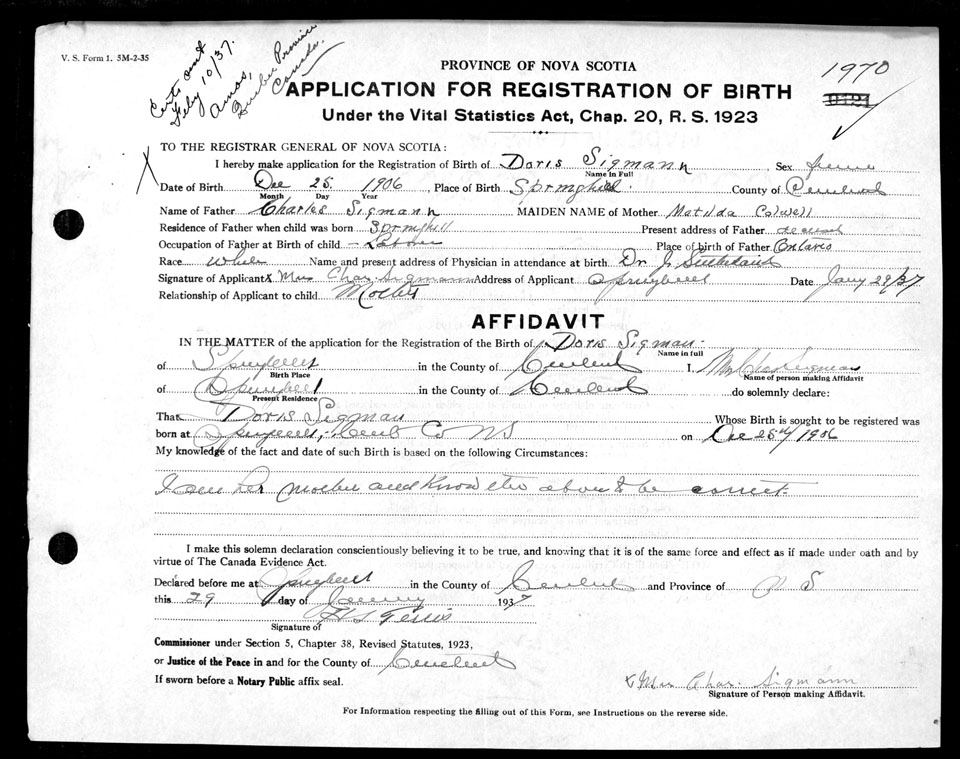 V. S. Form 1. 5M-2-35
Certs sent
Feby 10/37.
Amos,
Quebec Province
Canada.
PROVINCE OF NOVA SCOTIA
1970
APPLICATION FOR REGISTRATION OF BIRTH
Under the Vital Statistics Act, Chap. 20, R. S. 1923
TO THE REGISTRAR GENERAL OF NOVA SCOTIA:
X
I hereby make application for the Registration of Birth of Doris Sigmann Sex
Name in Full
Date of Birth Dec 25. 1906, Place of Birth Springhill County of
Month Day Year
Name of Father Charles Sigmann MAIDEN NAME of Mother Matilda Colwell
Residence of Father when child was born Springhill Present address of Father deceased
Occupation of Father at Birth of child - Laborer Place of birth of Father Ontario
Race White Name and present address of Physician in attendance at birth. Dr J. Sutherland
Signature of Applicant X Mrs Chas. Sigmann Address of Applicant Springhill Date Jany 29/37
Relationship of Applicant to child Mother
AFFIDAVIT
IN THE MATTER of the application for the Registration of the Birth of Doris Sigman
Name in full
of Springhill in the County of I, Mrs Chas Sigman
Birth Place Name of person making Affidavit
of Springhill in the County of do solemnly declare:
Present Residence
That Doris Sigman Whose Birth is sought to be registered was
born at Springhill, Co NS on Dec 25th 1906
My knowledge of the fact and date of such Birth is based on the following Circumstances:
I am her mother and know the above to be correct.
I make this solemn declaration conscientiously believing it to be true, and knowing that it is of the same force and effect as if made under oath and by
virtue of The Canada Evidence Act.
Declared before me at Springhill in the County of and Province of N S
this 29 day of January 1937
Signature of
Commissioner under Section 5, Chapter 38, Revised Statutes, 1923,
or Justice of the Peace in and for the County of
If sworn before a Notary Public affix seal.
x Mrs Chas. Sigmann
Signature of Person making Affidavit.
For Information respecting the filling out of this Form, see Instructions on the reverse side.